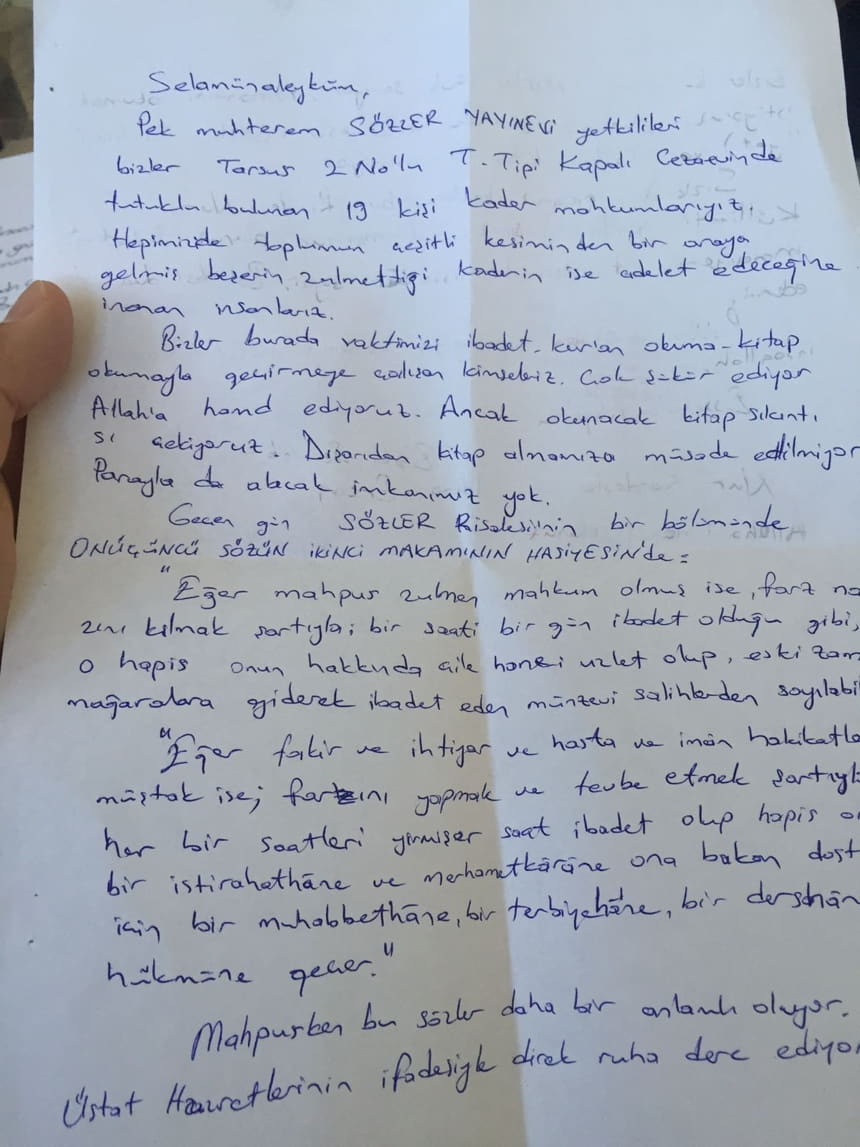 Selamünaleyküm,
Pek muhterem SÖZLER YAYINEVİ yetkilileri
bizler Tarsus 2 No'lu T-Tipi Kapalı Cezaevinde
tutuklu bulunan 19 kişi kader mahkumlarıyız.
Hepimizde toplumun çeşitli kesiminden bir araya
gelmiş beşerin zulmettiği kaderin ise adelet edeceğine
inanan insanlarız.
Bizler burada vaktimizi ibadet-kur'an okuma-kitap
okumayla geçirmeye çalışan kimseleriz. Çok şükür ediyor
Allah'a hamd ediyoruz. Ancak okunacak kitap sıkıntı
sı çekiyoruz. Dışarıdan kitap almamıza müsade edilmiyor
Parayla da alacak imkanımız yok.
Geçen gün SÖZLER Risalesi'nin bir bölümünde
ONÜÇÜNCÜ SÖZÜN İKİNCİ MAKAMININ HAŞİYESİN'de:
"Eğer mahpus zulmen mahkum olmuş ise, farz na
zını kılmak şartıyla; bir saati bir gün ibadet olduğu gibi,
o hapis onun hakkında çile hanei uzlet olup, eski zam
mağaralara giderek ibadet eden münzevi salihlerden sayılabil
"Eğer fakir ve ihtiyar ve hasta ve imân hakikatle
müştak ise; farzını yapmak ve tevbe etmek şartıyl
her bir saatleri yirmişer saat ibadet olup hapis o
bir istirahathâne ve merhametkârâne ona bakan dost
için bir muhabbethâne, bir terbiyehâne, bir dershân
hükmüne geçer."
Mahpusken bu sözler daha bir anlamlı oluyor.
Üstat Hazretlerinin ifadesiyle direk ruha derc ediyo